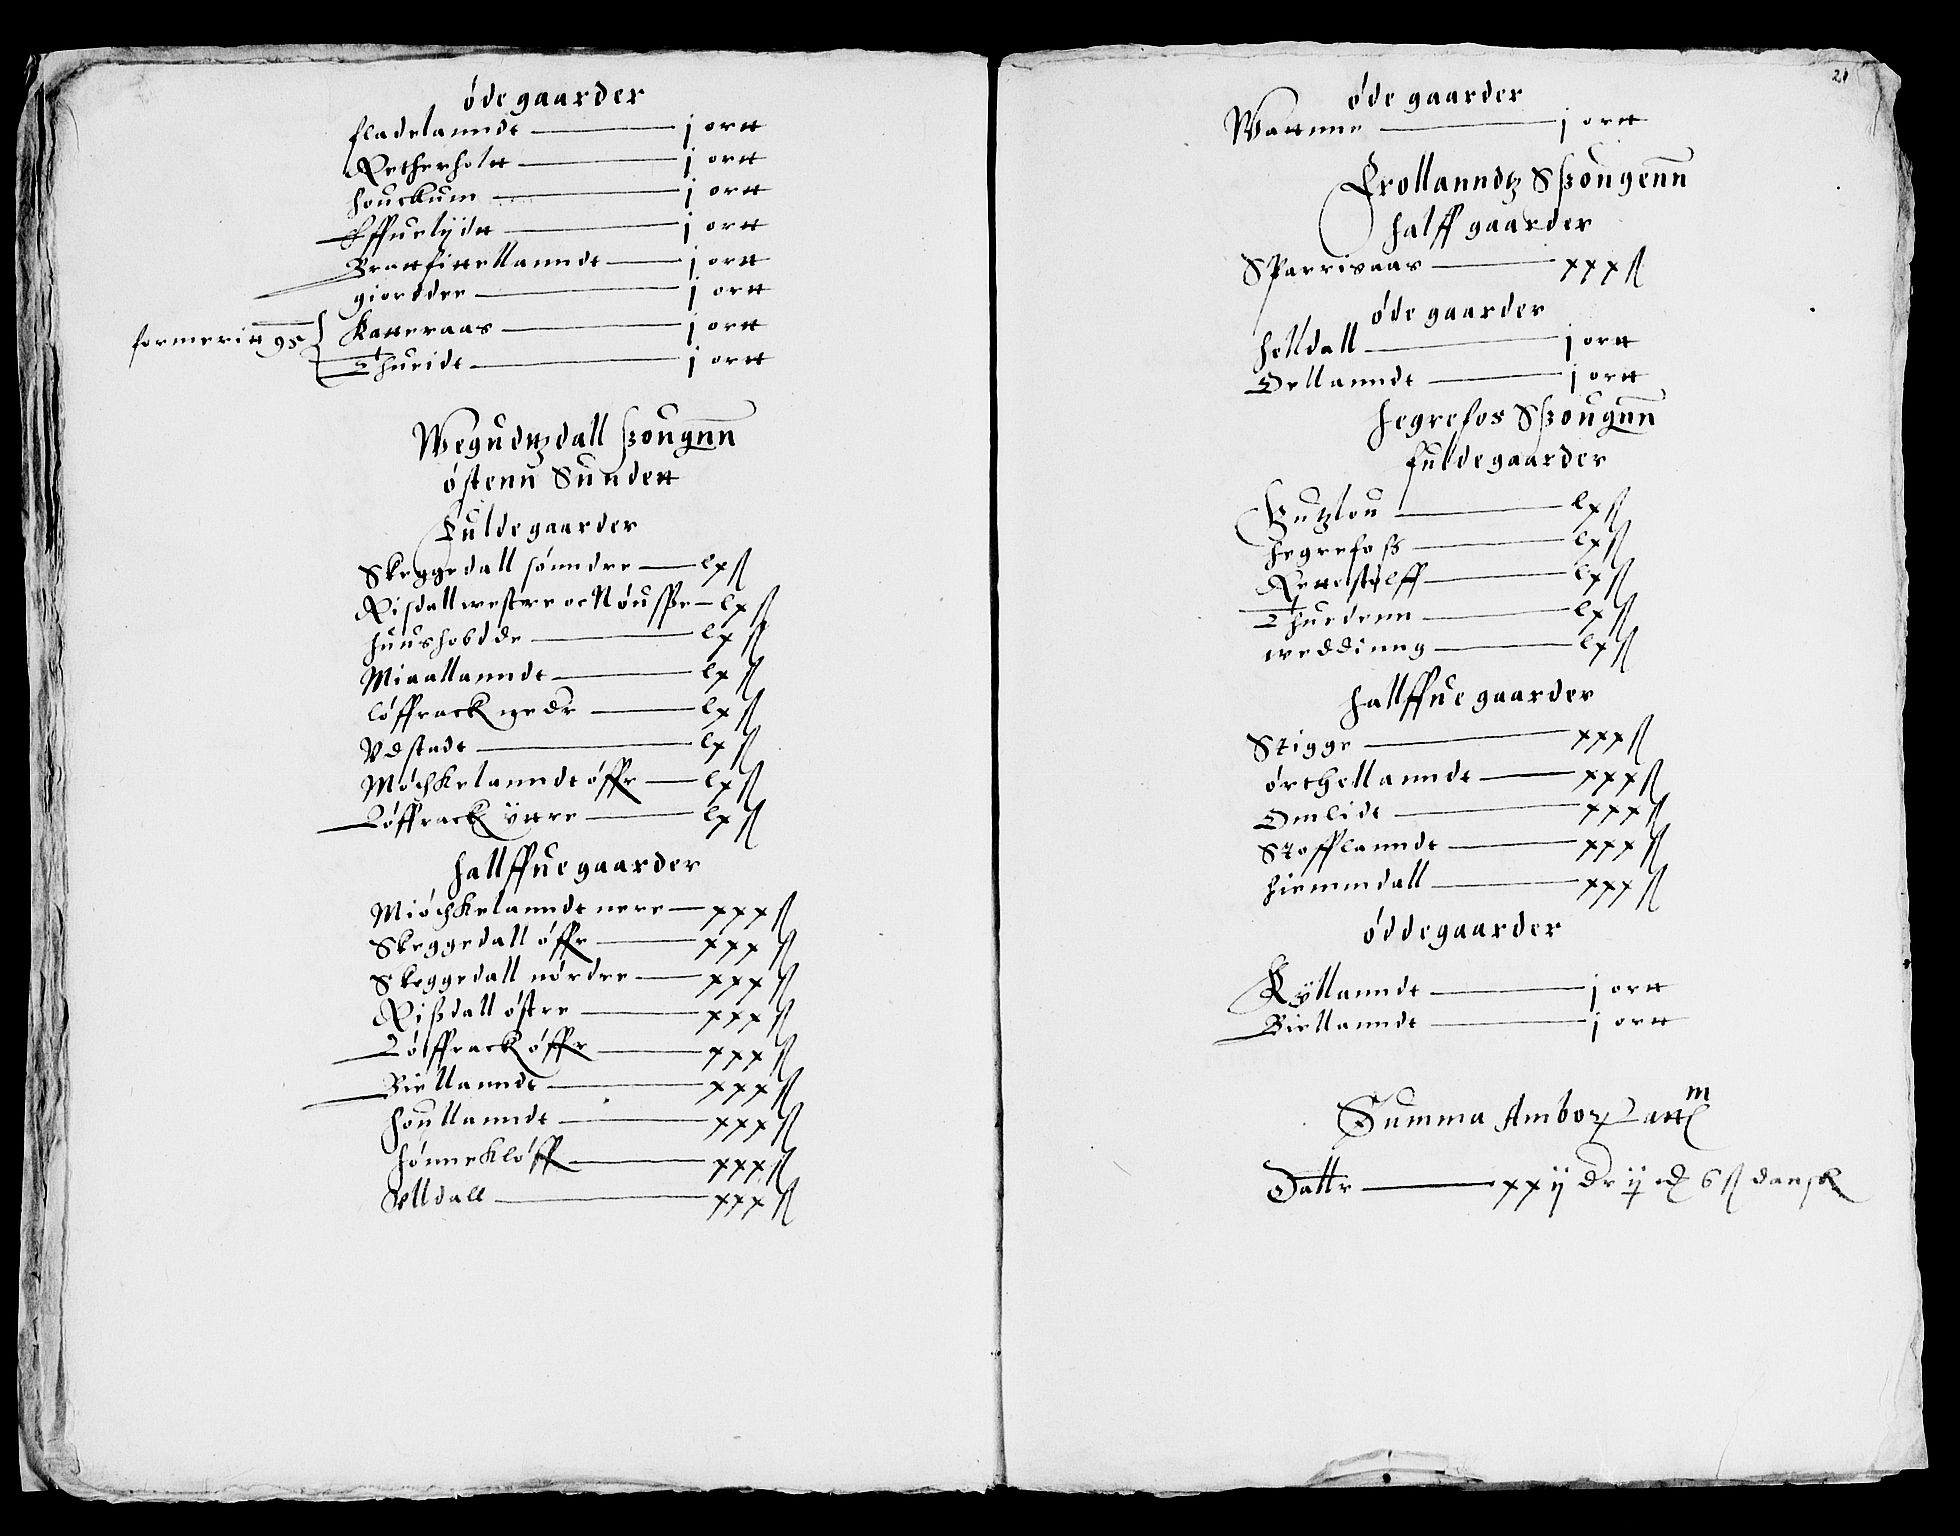 øde gaarder
fladelanndt — j ortt
Retherholtt — j ortt
houckum — j ortt
Effuelijdtt — j ortt
Brattfittellanndt — j ortt
giorddee — j ortt
formeritt 95 { Katteraas — j ortt
Thueidt — j ortt
Wegudtzdall szougnn
østenn Sundett
Fuldegaarder
Skeggedall sønndre — lx ſſ
Risdall westre oc Nøusspe — lx ſſ
huushobdde — lx ſſ
Miaallanndt — lx ſſ
løffrack nedr — lx ſſ
Vdstadt — lx ſſ
Møchkelanndt øffr — lx ſſ
Løffrack ÿttre — lx ſſ
hallffue gaarder
Miøchkelanndt nere — xxx ſſ
Skeggedall øffr — xxx ſſ
Skeggedall nørdre — xxx ſſ
Riszdall østre — xxx ſſ
Løffrack øffr — xxx ſſ
Biellanndt — xxx ſſ
houllanndt — xxx ſſ
hønnekløff — xxx ſſ
Selldall — xxx ſſ
21
øde gaarder
Wattnne — j ortt
Frollanndtz Szougenn
halff gaarder
Sparrisaas — xxx ſſ
øde gaarder
helldall — j ortt
Oellanndt — j ortt
hegrefos Szougnn
fulde gaarder
Putzlou — lx ſſ
hegrefosz — lx ſſ
Rettestølff — lx ſſ
Thuedenn — lx ſſ
weddinng — lx ſſ
hallffue gaarder
Stigge — xxx ſſ
ørchellanndt — xxx ſſ
Omlidt — xxx ſſ
Stofflanndt — xxx ſſ
hiemmdall — xxx ſſ
ødde gaarder
Kyllanndt — j ortt
Biellanndt — j ortt
Summa Ambor
Dallr — xxij dr ij 6 ſſ dansk